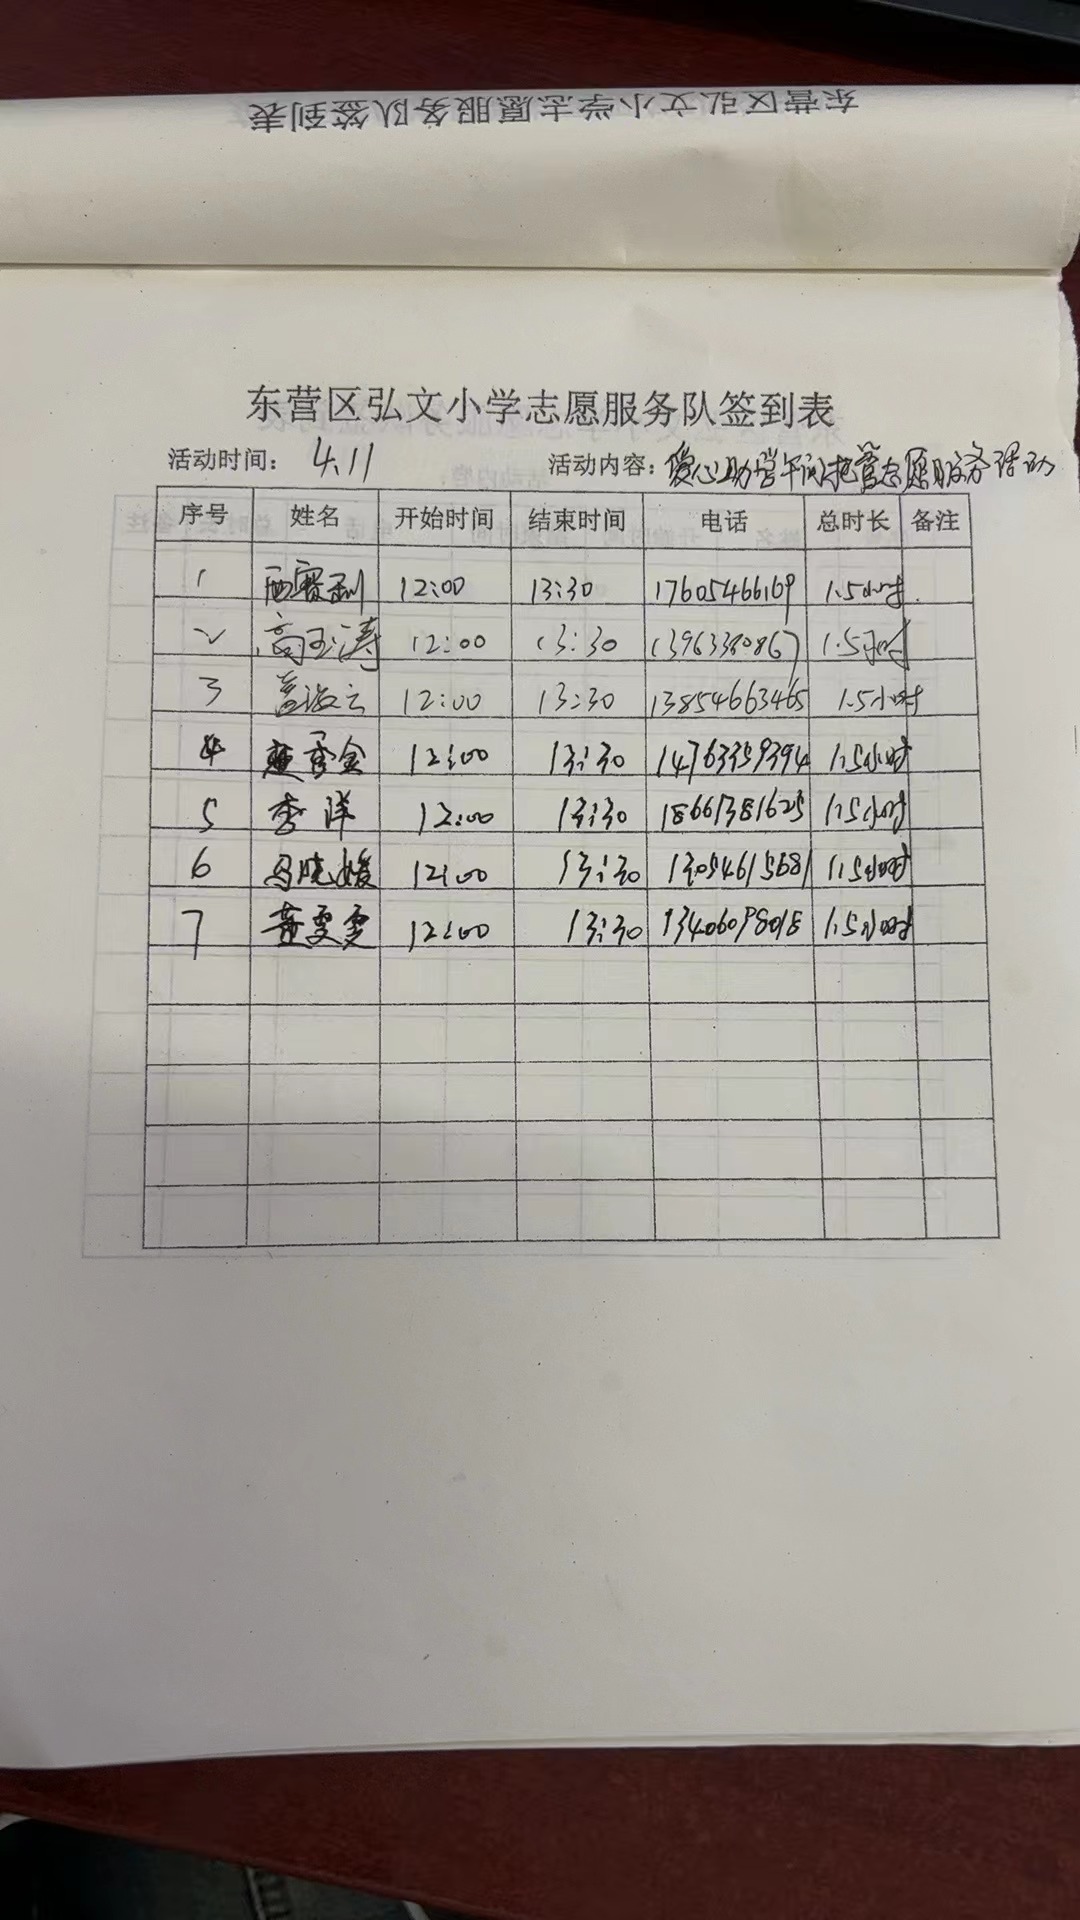 东营区弘文小学志愿服务队签到表
东营区弘文小学志愿服务队签到表
活动时间: 4.11 活动内容: 爱心助学午间托管志愿服务活动
序号 姓名 开始时间 结束时间 电话 总时长 备注
1 12:00 13:30 17605466169 1.5小时
2 高玉涛 12:00 13:30 1.5小时
3 12:00 13:30 13854663465 1.5小时
4 12:00 13:30 14763359394 1.5小时
5 李洋 12:00 13:30 18661381625 1.5小时
6 马晓媛 12:00 13:30 13054615681 1.5小时
7 董雯雯 12:00 13:30 13406098018 1.5小时